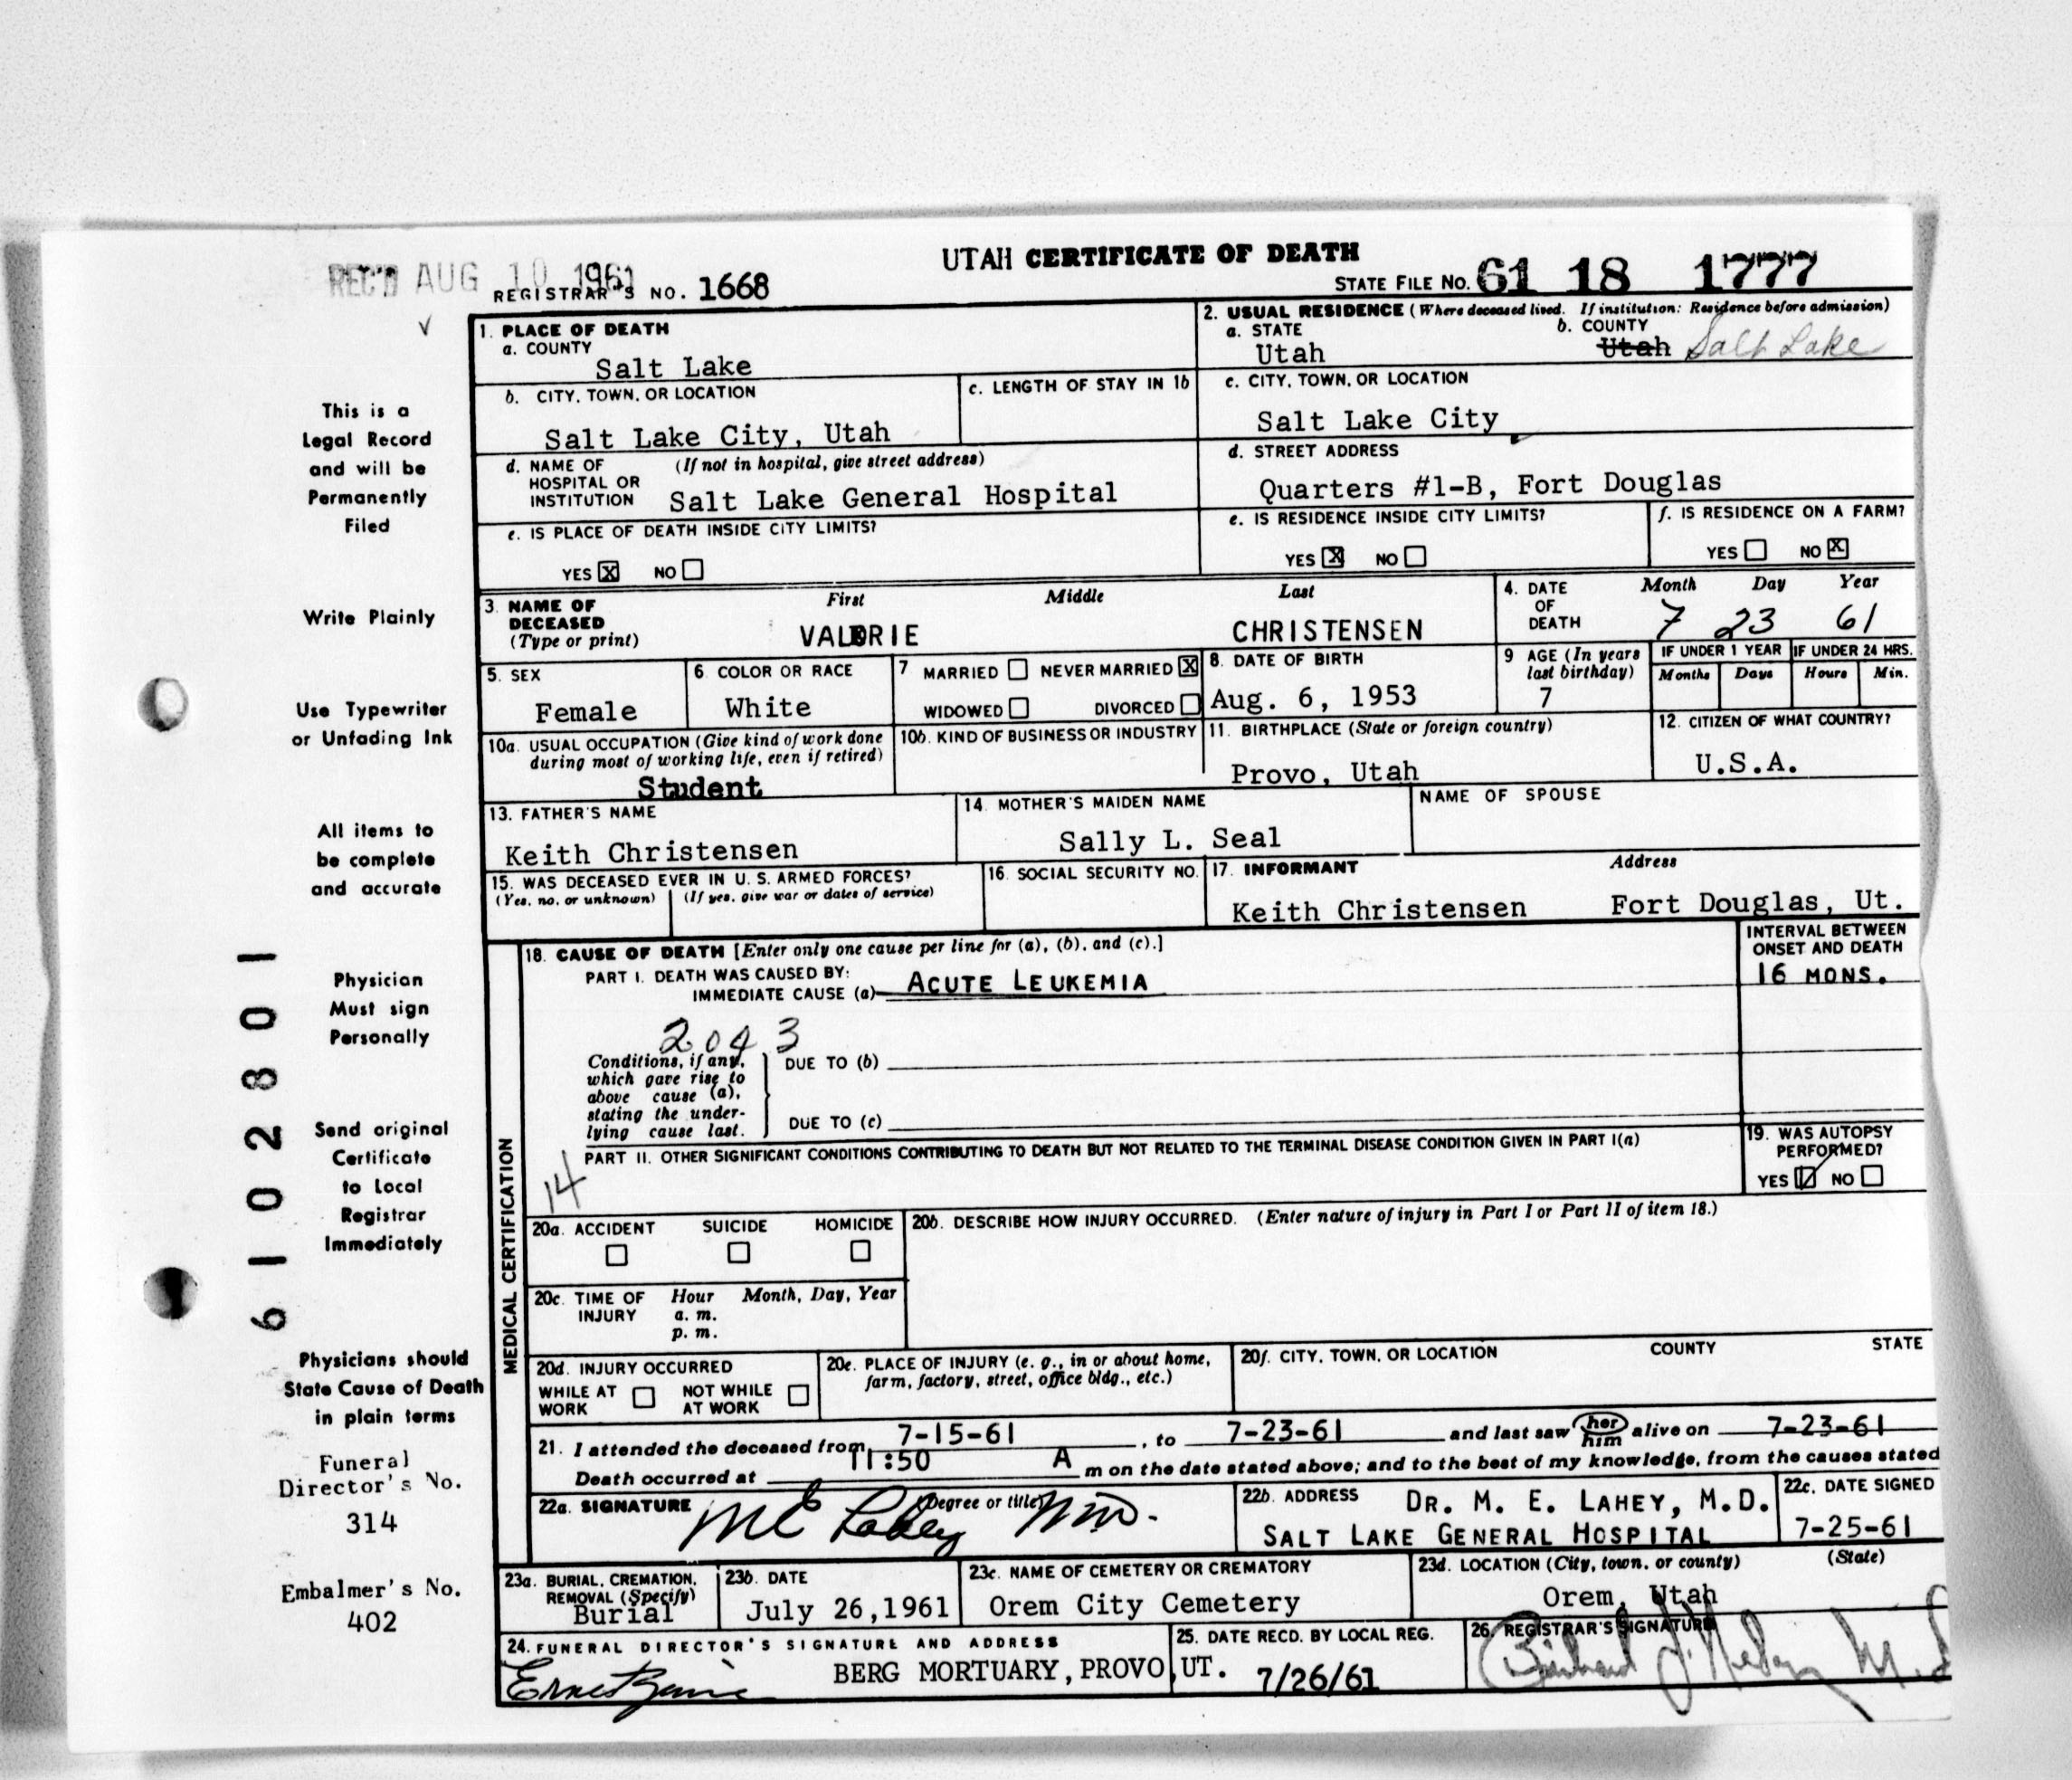 UTAH CERTIFICATE OF DEATH
REC'D AUG 10 1961
REGISTRAR'S NO. 1668
STATE FILE NO. 61 18 1777
1. PLACE OF DEATH
a. COUNTY
Salt Lake
2. USUAL RESIDENCE (Where deceased lived. If institution: Residence before admission)
a. STATE
Utah
b. COUNTY
Utah Salt Lake
b. CITY, TOWN, OR LOCATION
Salt Lake City, Utah
c. LENGTH OF STAY IN 1b
c. CITY, TOWN, OR LOCATION
Salt Lake City
d. NAME OF HOSPITAL OR INSTITUTION
(If not in hospital, give street address)
Salt Lake General Hospital
d. STREET ADDRESS
Quarters #1-B, Fort Douglas
e. IS PLACE OF DEATH INSIDE CITY LIMITS?
YES X NO
e. IS RESIDENCE INSIDE CITY LIMITS?
YES X NO
f. IS RESIDENCE ON A FARM?
YES NO X
3. NAME OF DECEASED (Type or print)
First Middle Last
VALORIE CHRISTENSEN
4. DATE OF DEATH
Month Day Year
7 23 61
5. SEX
Female
6. COLOR OR RACE
White
7. MARRIED NEVER MARRIED X
WIDOWED DIVORCED
8. DATE OF BIRTH
Aug. 6, 1953
9 AGE (In years last birthday)
7
IF UNDER 1 YEAR
Months Days
IF UNDER 24 HRS.
Hours Min.
10a. USUAL OCCUPATION (Give kind of work done during most of working life, even if retired)
Student
10b. KIND OF BUSINESS OR INDUSTRY
11. BIRTHPLACE (State or foreign country)
Provo, Utah
12. CITIZEN OF WHAT COUNTRY?
U.S.A.
13. FATHER'S NAME
Keith Christensen
14. MOTHER'S MAIDEN NAME
Sally L. Seal
NAME OF SPOUSE
15. WAS DECEASED EVER IN U. S. ARMED FORCES?
(Yes, no, or unknown) (If yes, give war or dates of service)
16. SOCIAL SECURITY NO.
17. INFORMANT Address
Keith Christensen Fort Douglas, Ut.
MEDICAL CERTIFICATION
18. CAUSE OF DEATH [Enter only one cause per line for (a), (b), and (c).]
PART I. DEATH WAS CAUSED BY:
IMMEDIATE CAUSE (a) ACUTE LEUKEMIA
INTERVAL BETWEEN ONSET AND DEATH
16 MONS.
2043
Conditions, if any, which gave rise to above cause (a), stating the underlying cause last.
DUE TO (b)
DUE TO (c)
PART II. OTHER SIGNIFICANT CONDITIONS CONTRIBUTING TO DEATH BUT NOT RELATED TO THE TERMINAL DISEASE CONDITION GIVEN IN PART I(a)
14
19. WAS AUTOPSY PERFORMED?
YES NO
20a. ACCIDENT SUICIDE HOMICIDE
20b. DESCRIBE HOW INJURY OCCURRED. (Enter nature of injury in Part I or Part II of item 18.)
20c. TIME OF INJURY
Hour Month, Day, Year
a. m.
p. m.
20d. INJURY OCCURRED
WHILE AT WORK NOT WHILE AT WORK
20e. PLACE OF INJURY (e. g., in or about home, farm, factory, street, office bldg., etc.)
20f. CITY, TOWN, OR LOCATION COUNTY STATE
21. I attended the deceased from 7-15-61, to 7-23-61 and last saw her him alive on 7-23-61
Death occurred at 11:50 A m on the date stated above; and to the best of my knowledge, from the causes stated
22a. SIGNATURE (Degree or title)
ME Lahey MD.
22b. ADDRESS
DR. M. E. LAHEY, M.D.
SALT LAKE GENERAL HOSPITAL
22c. DATE SIGNED
7-25-61
23a. BURIAL, CREMATION, REMOVAL (Specify)
Burial
23b. DATE
July 26,1961
23c. NAME OF CEMETERY OR CREMATORY
Orem City Cemetery
23d. LOCATION (City, town, or county) (State)
Orem, Utah
24. FUNERAL DIRECTOR'S SIGNATURE AND ADDRESS
BERG MORTUARY, PROVO, UT.
25. DATE RECD. BY LOCAL REG.
7/26/61
26. REGISTRAR'S SIGNATURE
This is a
Legal Record
and will be
Permanently
Filed
Write Plainly
Use Typewriter
or Unfading Ink
All items to
be complete
and accurate
Physician
Must sign
Personally
Send original
Certificate
to Local
Registrar
Immediately
Physicians should
State Cause of Death
in plain terms
Funeral
Director's No.
314
Embalmer's No.
402
6102801